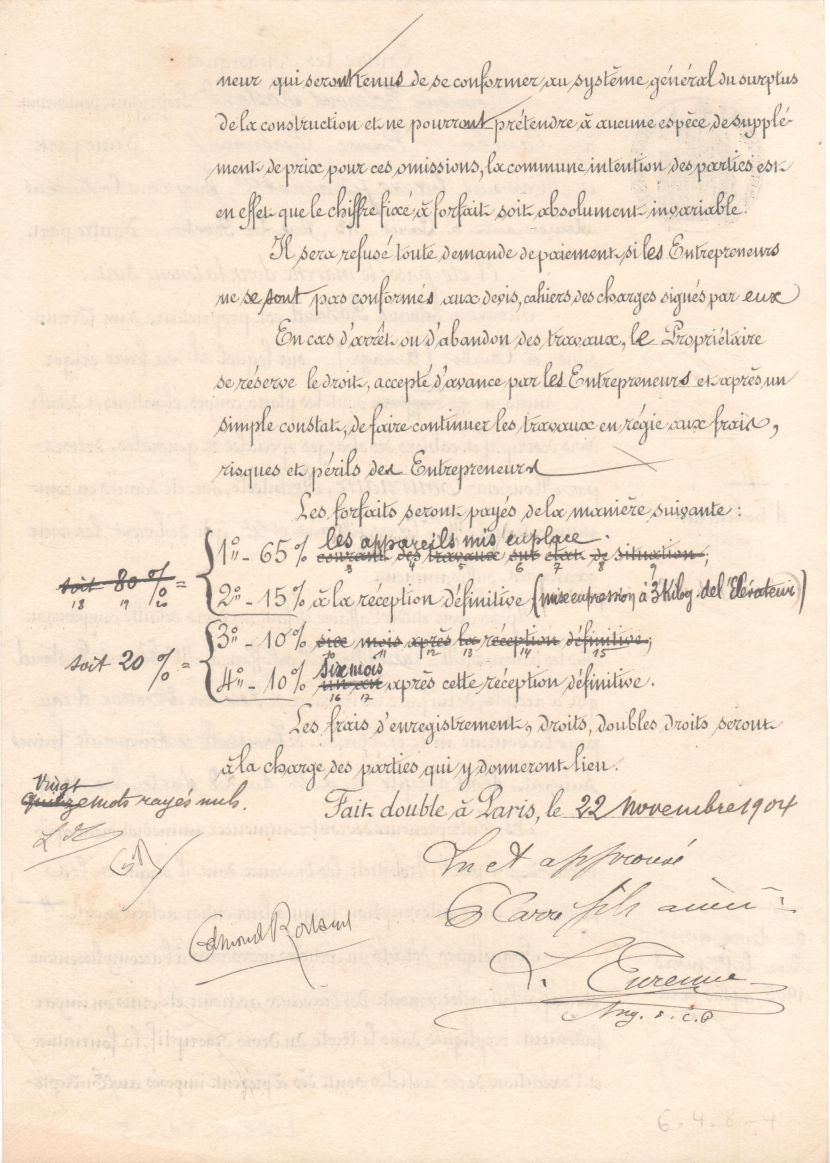 neur qui seront tenus de se conformer au système général du surplus
de la construction et ne pourront prétendre à aucune espèce de supplé-
ment de prix pour ces omissions, la commune intention des parties est
en effet que le chiffre fixé à forfait soit absolument invariable.
Il sera refusé toute demande de paiement si les Entrepreneurs
ne se sont pas conformés aux devis, cahiers des charges signés par eux
En cas d'arrêt ou d'abandon des travaux, le Propriétaire
se réserve le droit, accepté d'avance par les Entrepreneurs et après un
simple constat, de faire continuer les travaux en régie aux frais,
risques et périls des Entrepreneurs
Les forfaits seront payés de la manière suivante :
les appareils mis en place.
1º - 65 % courant des travaux sur état de situation;
3 4 5 6 7 8 9
soit 80 % =
18 19 20
2º - 15 % à la réception définitive (mise en pression à 3 Kilog. de l'Elévateur)
3º - 10 % six mois après la réception définitive;
10 11 12 13 14 15
soit 20 % =
six mois
4º - 10 % un an après cette réception définitive.
16 17
Les frais d'enregistrement, droits, doubles droits seront
à la charge des parties qui y donneront lieu.
Vingt
quinze mots rayés nuls.
Fait double à Paris, le 22 Novembre 1904
Lu et approuvé
Carré fils aîné
Edmond Rostand
Ing. E.C.P
6.4.8-4